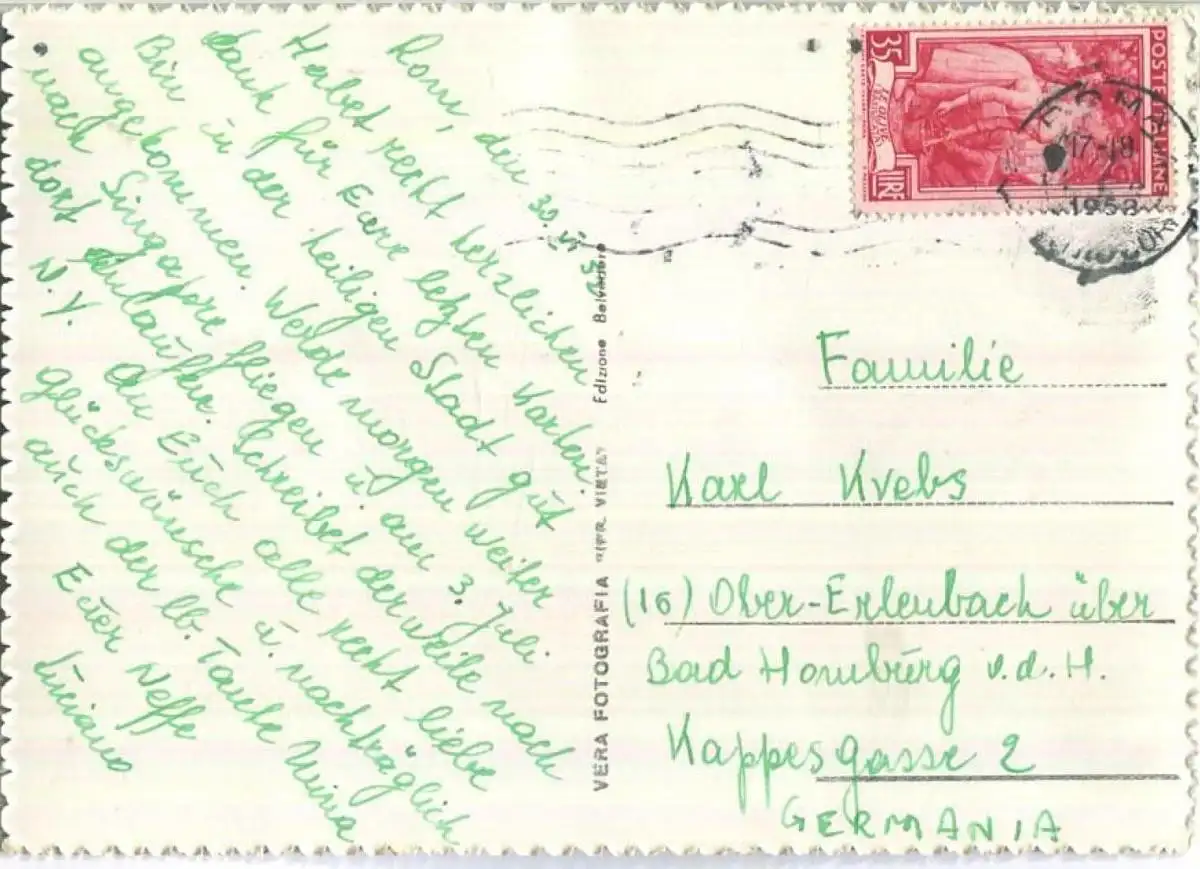 Rom, den 30. VI 53
Habet recht herzlichen
Dank für Eure letzten Karten.
Bin in der heiligen Stadt gut
angekommen. Werde morgen weiter
nach Singapore fliegen u. am 3. Juli
dort einlaufen. Schreibet derweile nach
N.Y. An Euch alle recht liebe
glückswünsche u. nachträglich
auch der lb. Tante Minna
Euer Neffe
Luciano
VERA FOTOGRAFIA
Edizione Belvedere
POSTE ITALIANE
35
LIRE
ROMA
17-18
Familie
Karl Krebs
(16) Ober-Erlenbach über
Bad Homburg v.d.H.
Kappesgasse 2
GERMANIA